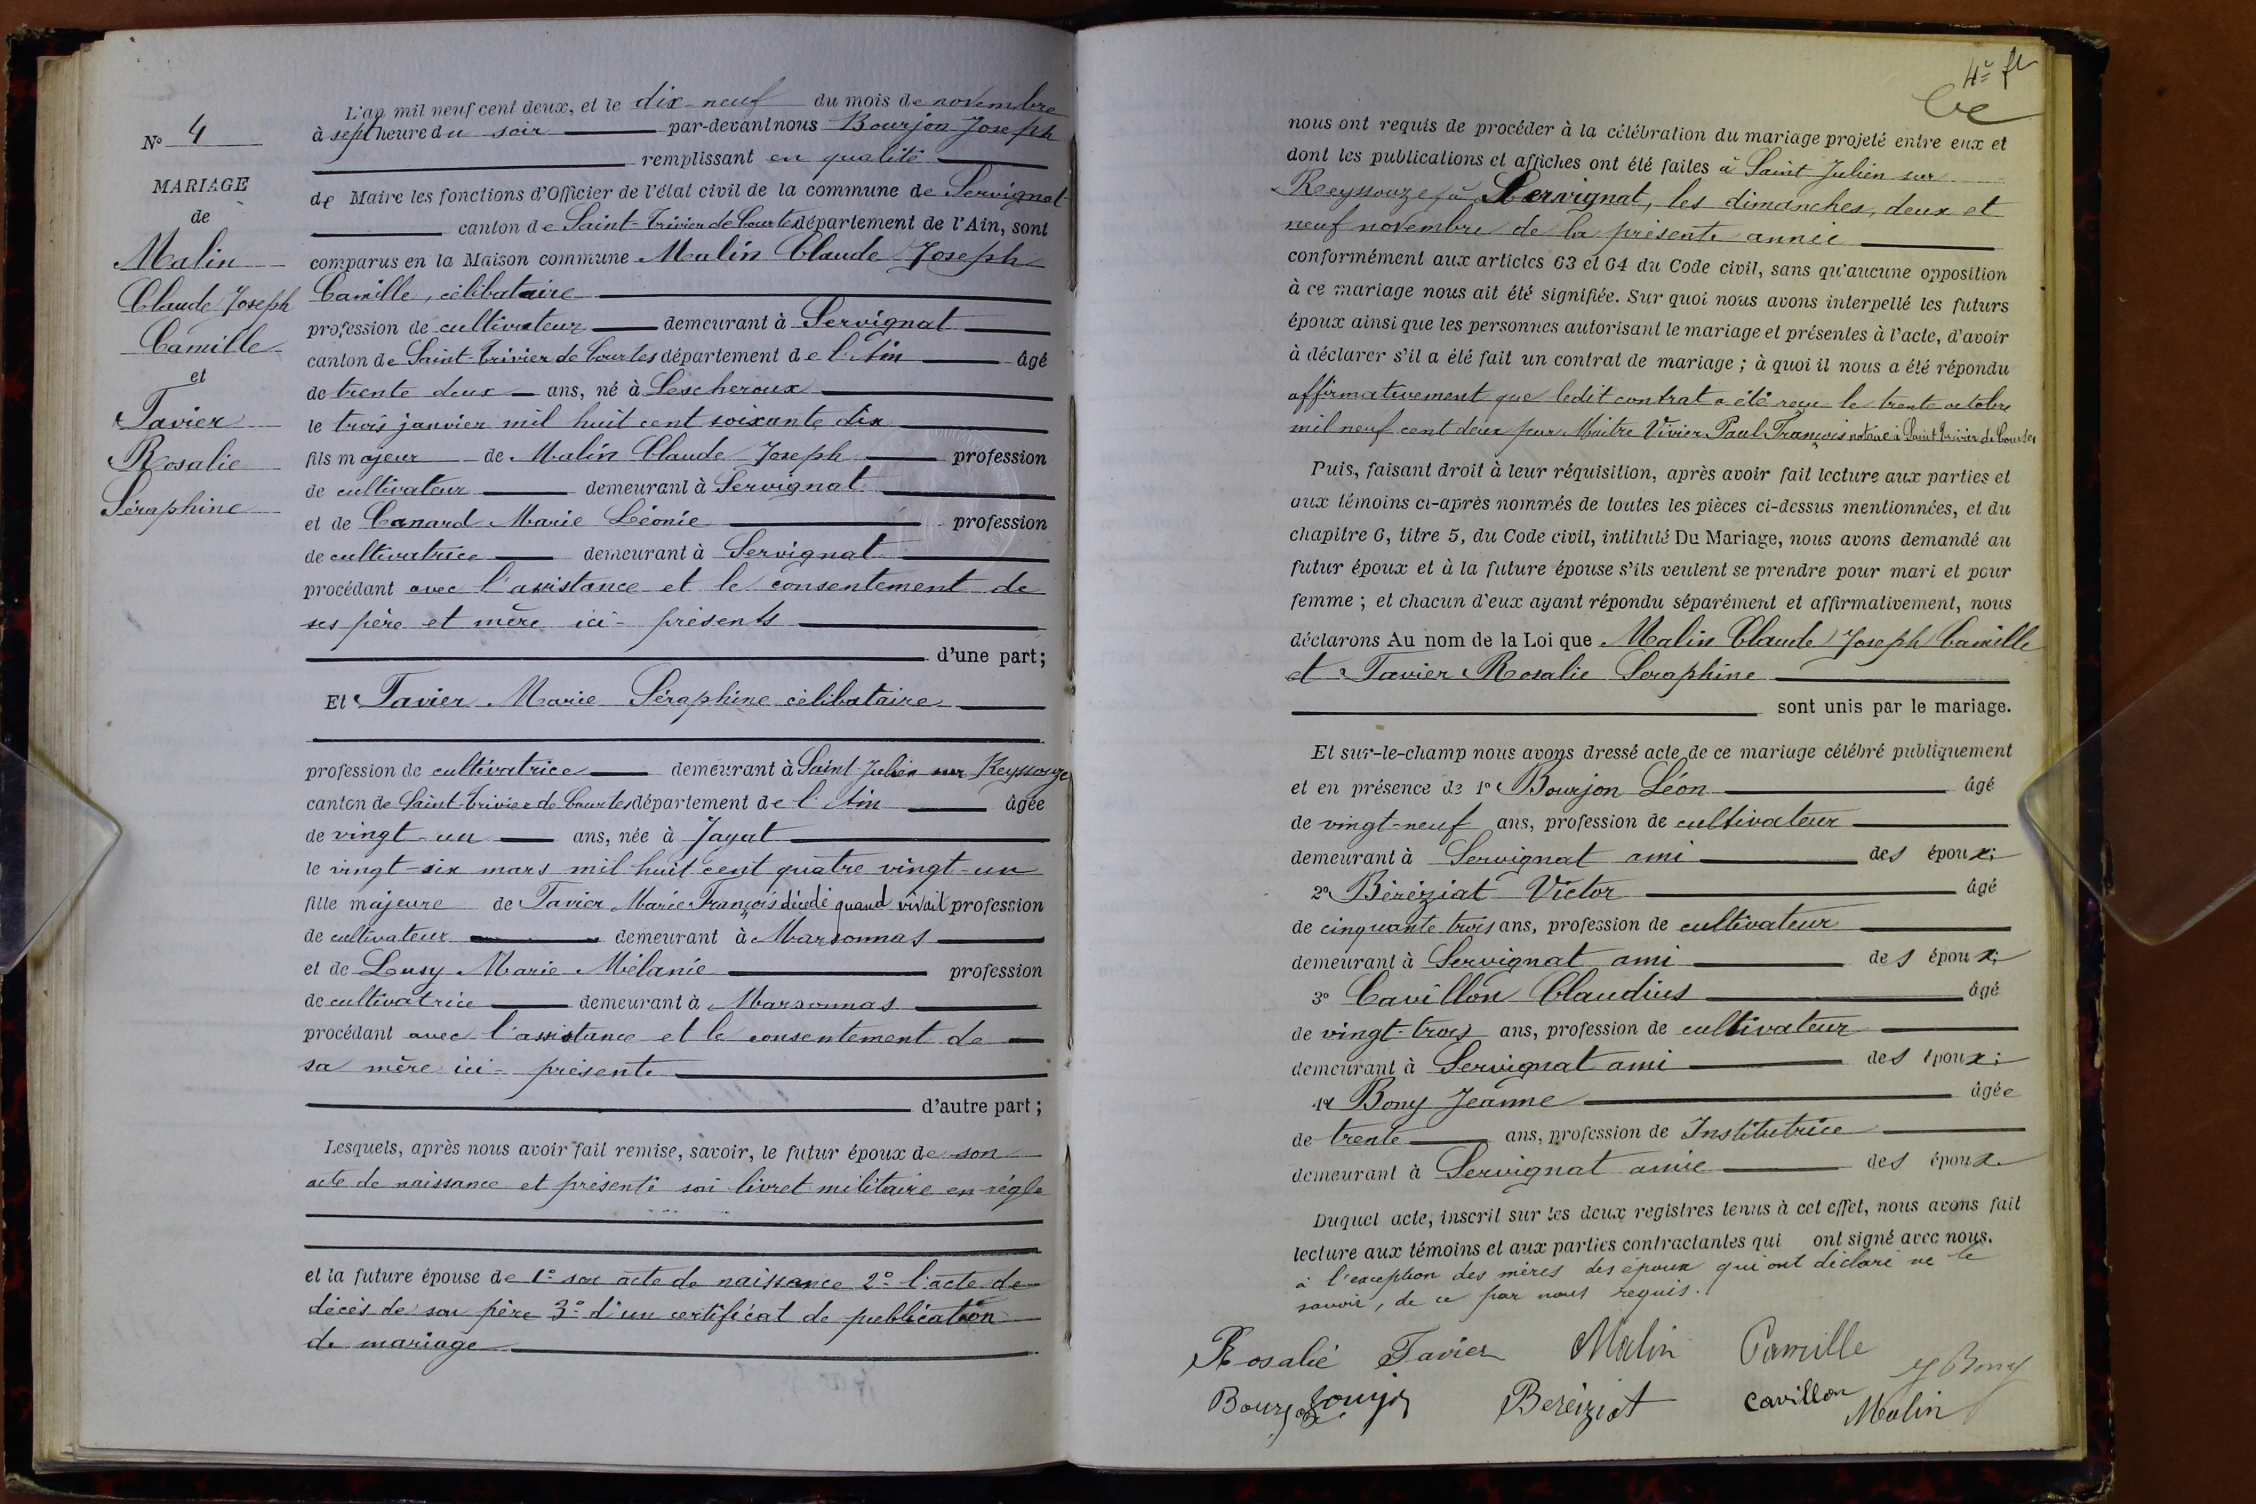 N° 4
MARIAGE
de
Malin
Claude Joseph
Camille
et
Tavier
Rosalie
Séraphine
L'an mil neuf cent deux, et le dix-neuf du mois de novembre
à sept heure du soir par-devant nous Bourjon Joseph
remplissant en qualité
de Maire les fonctions d'Officier de l'état civil de la commune de Servignat
canton de Saint-Trivier de Courtes département de l'Ain, sont
comparus en la Maison commune Malin Claude Joseph
Camille, célibataire
profession de cultivateur demeurant à Servignat
canton de Saint-Trivier de Courtes département de l'Ain âgé
de trente deux ans, né à Lescheroux
le trois janvier mil huit cent soixante dix
fils majeur de Malin Claude Joseph profession
de cultivateur demeurant à Servignat
et de Canard Marie Léonie profession
de cultivatrice demeurant à Servignat
procédant avec l'assistance et le consentement de
ses père et mère ici-présents
d'une part;
Et Tavier Marie Séraphine célibataire
profession de cultivatrice demeurant à Saint-Julien sur Reyssouze
canton de Saint-Trivier de Courtes département de l'Ain âgée
de vingt-un ans, née à Jayat
le vingt-six mars mil huit cent quatre vingt-un
fille majeure de Tavier Marie François décédé quand vivait profession
de cultivateur demeurant à Marsonnas
et de Lusy Marie Mélanie profession
de cultivatrice demeurant à Marsonnas
procédant avec l'assistance et le consentement de
sa mère ici-présente
d'autre part;
Lesquels, après nous avoir fait remise, savoir, le futur époux de son
acte de naissance et présenté son livret militaire en règle
et la future épouse de 1° son acte de naissance 2° l'acte de
décès de son père 3° d'un certificat de publication
de mariage
4e ft
nous ont requis de procéder à la célébration du mariage projeté entre eux et
dont les publications et affiches ont été faites à Saint Julien sur
Reyssouze, à Servignat, les dimanches, deux et
neuf novembre de la présente année
conformément aux articles 63 et 64 du Code civil, sans qu'aucune opposition
à ce mariage nous ait été signifiée. Sur quoi nous avons interpellé les futurs
époux ainsi que les personnes autorisant le mariage et présentes à l'acte, d'avoir
à déclarer s'il a été fait un contrat de mariage; à quoi il nous a été répondu
affirmativement que ledit contrat a été reçu le trente octobre
mil neuf cent deux par Maître Vivier Paul François notaire à Saint Trivier de Courtes
Puis, faisant droit à leur réquisition, après avoir fait lecture aux parties et
aux témoins ci-après nommés de toutes les pièces ci-dessus mentionnées, et du
chapitre 6, titre 5, du Code civil, intitulé Du Mariage, nous avons demandé au
futur époux et à la future épouse s'ils veulent se prendre pour mari et pour
femme; et chacun d'eux ayant répondu séparément et affirmativement, nous
déclarons Au nom de la Loi que Malin Claude Joseph Camille
et Tavier Rosalie Seraphine
sont unis par le mariage.
Et sur-le-champ nous avons dressé acte de ce mariage célébré publiquement
et en présence de 1° Bourjon Léon âgé
de vingt-neuf ans, profession de cultivateur
demeurant à Servignat ami des époux;
2° Béréziat Victor âgé
de cinquante trois ans, profession de cultivateur
demeurant à Servignat ami des époux;
3° Cavillon Claudius âgé
de vingt-trois ans, profession de cultivateur
demeurant à Servignat ami des époux;
4° Bony Jeanne âgée
de trente ans, profession de Institutrice
demeurant à Servignat amie des époux
Duquel acte, inscrit sur les deux registres tenus à cet effet, nous avons fait
lecture aux témoins et aux parties contractantes qui ont signé avec nous.
à l'exception des mères des époux qui ont déclaré ne le
savoir, de ce par nous requis.
Rosalie Tavier Malin Camille
J Bony
Bourjon Béréziat Cavillon
Malin